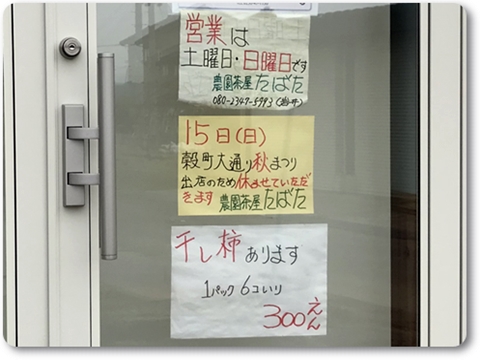 営業は
土曜日・日曜日です
農園茶屋たばた
15日(日)
穀町大通り秋まつり
出店のため休ませていただ
きます 農園茶屋たばた
干し柿あります
1パック 6コいり
300えん